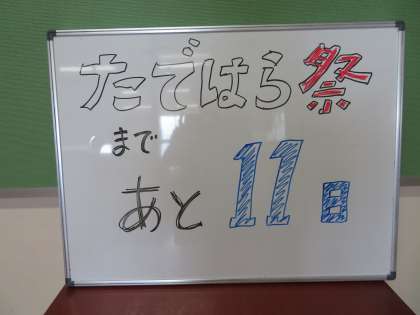 たではら祭
まで
あと11日